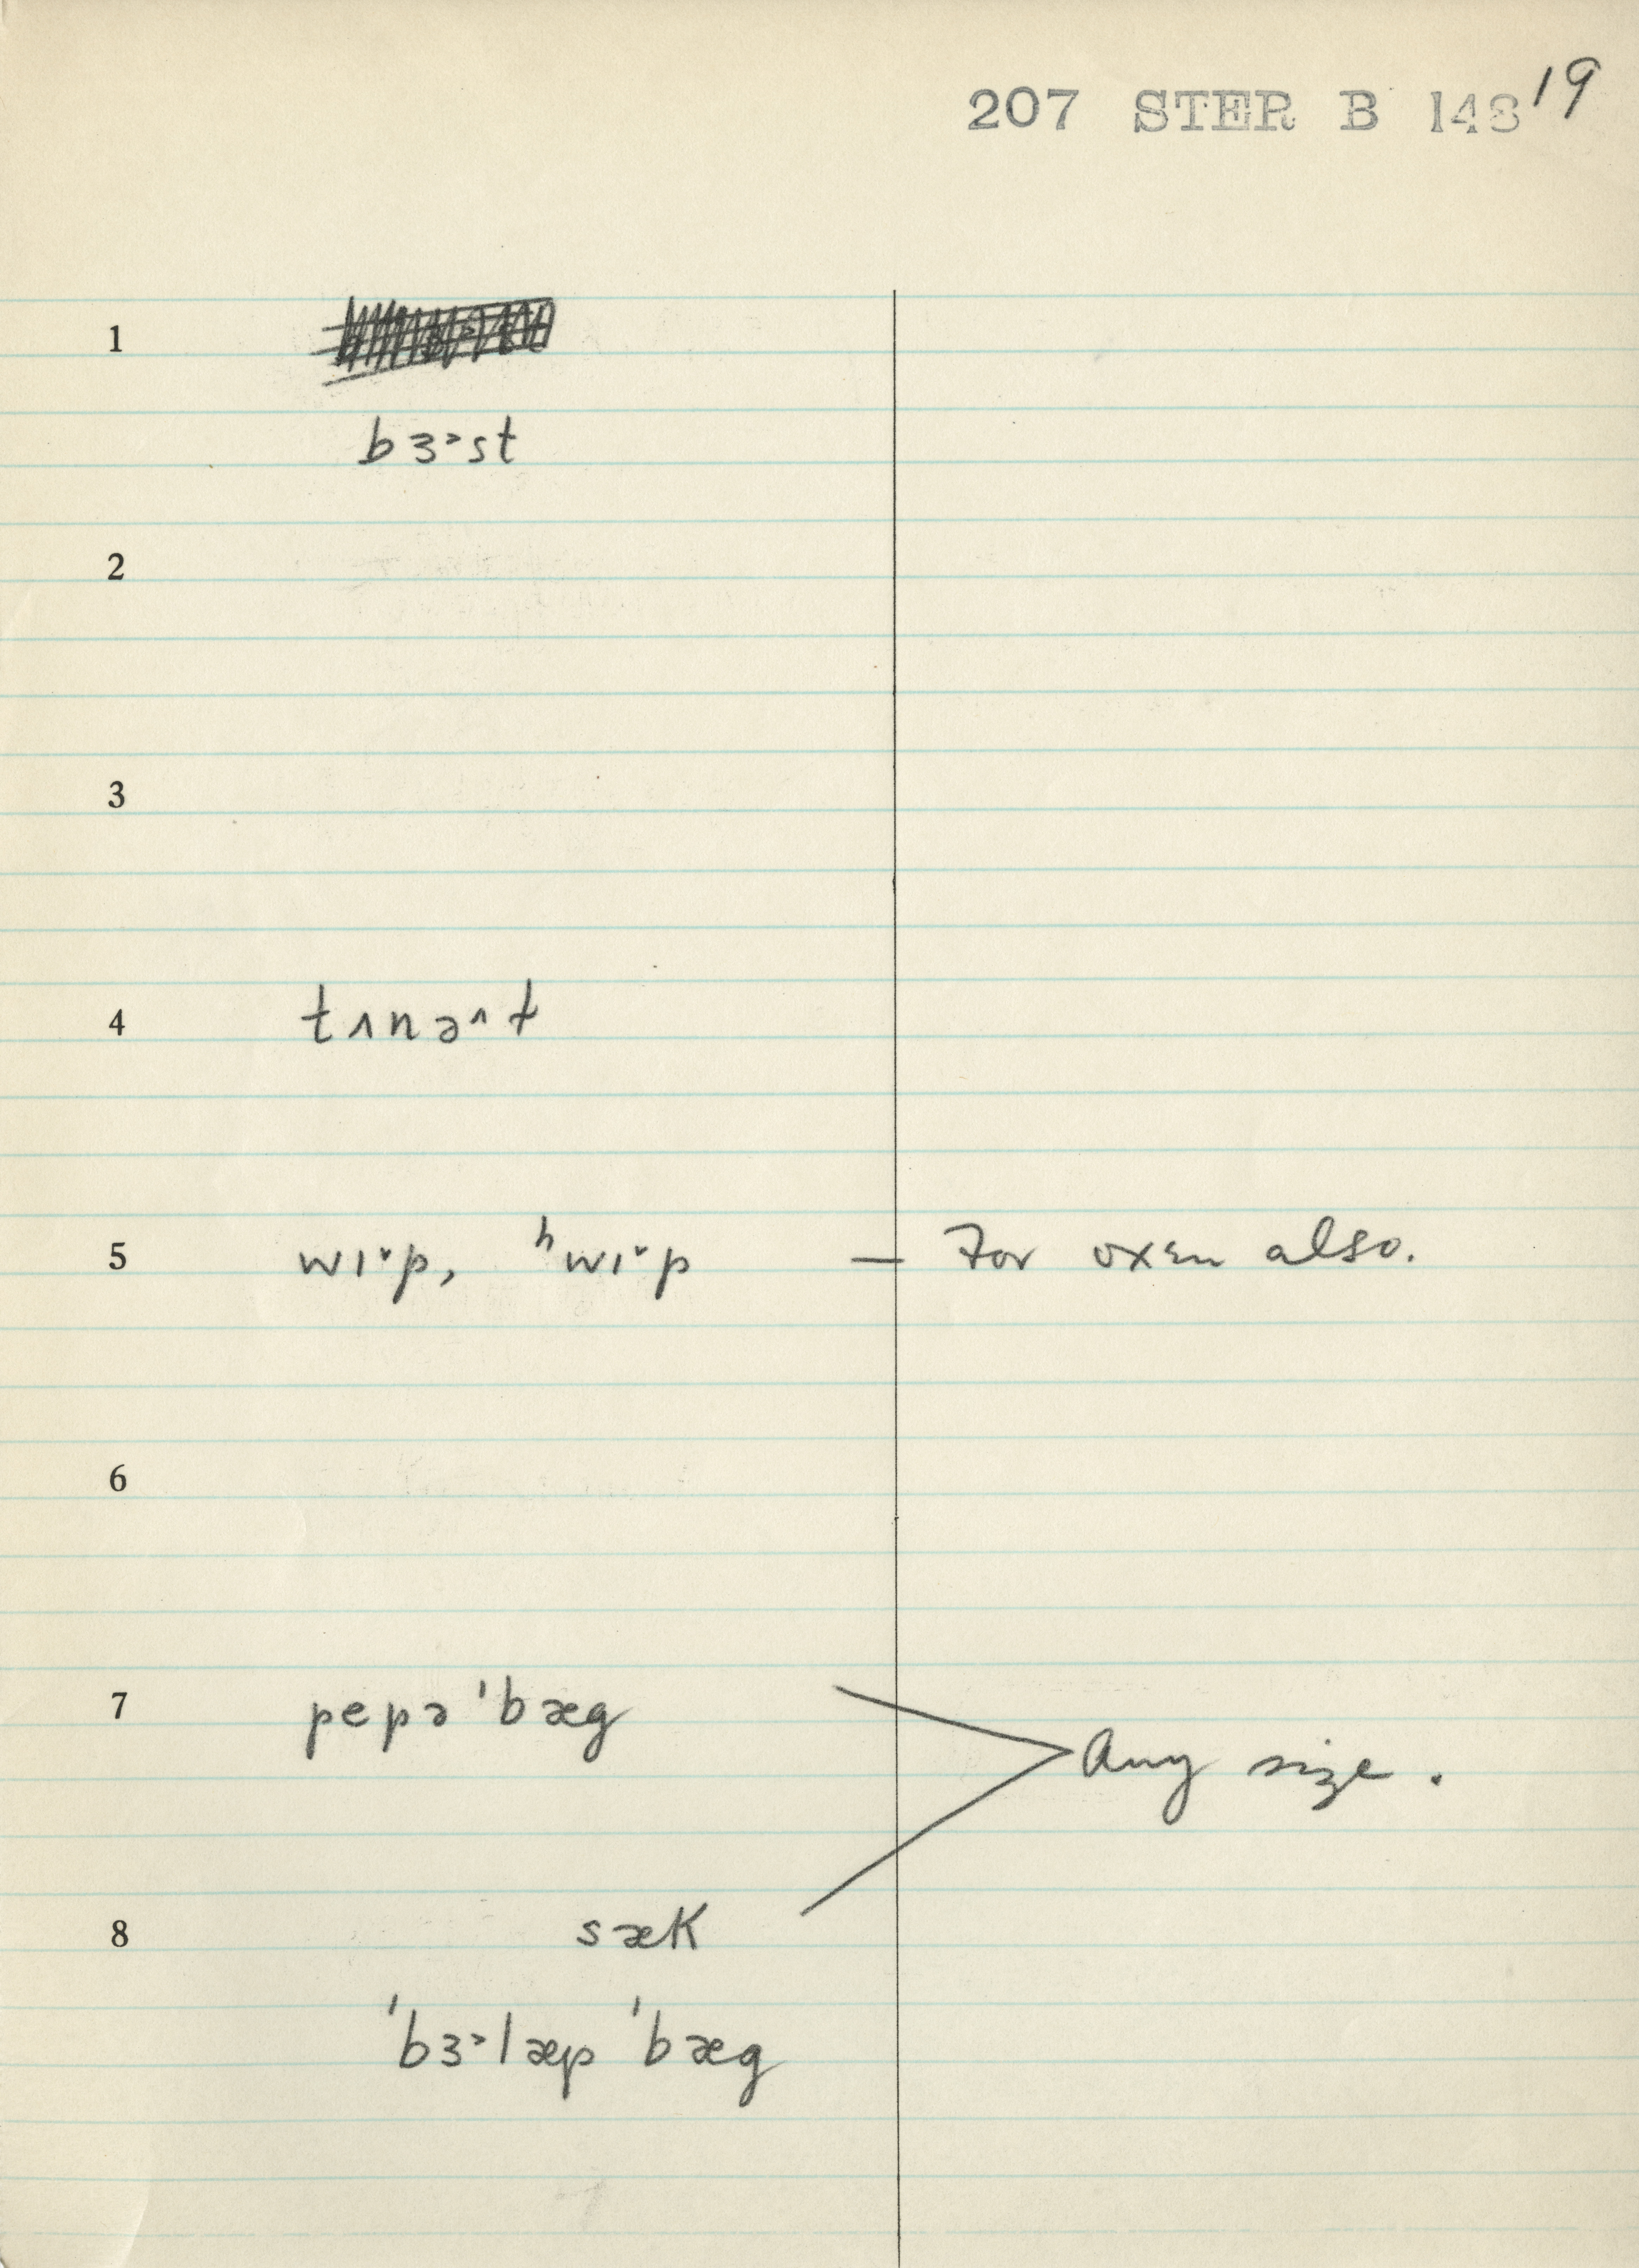 207 STER B 148 19
1
bɜ˃st
2
3
4 tʌnə^t
5 wɪ˅p, ʰwɪ˅p — For oxen also.
6
7 pepə ˈbæg
Any size.
8 sæk
ˈbɜ˃læp ˈbæg